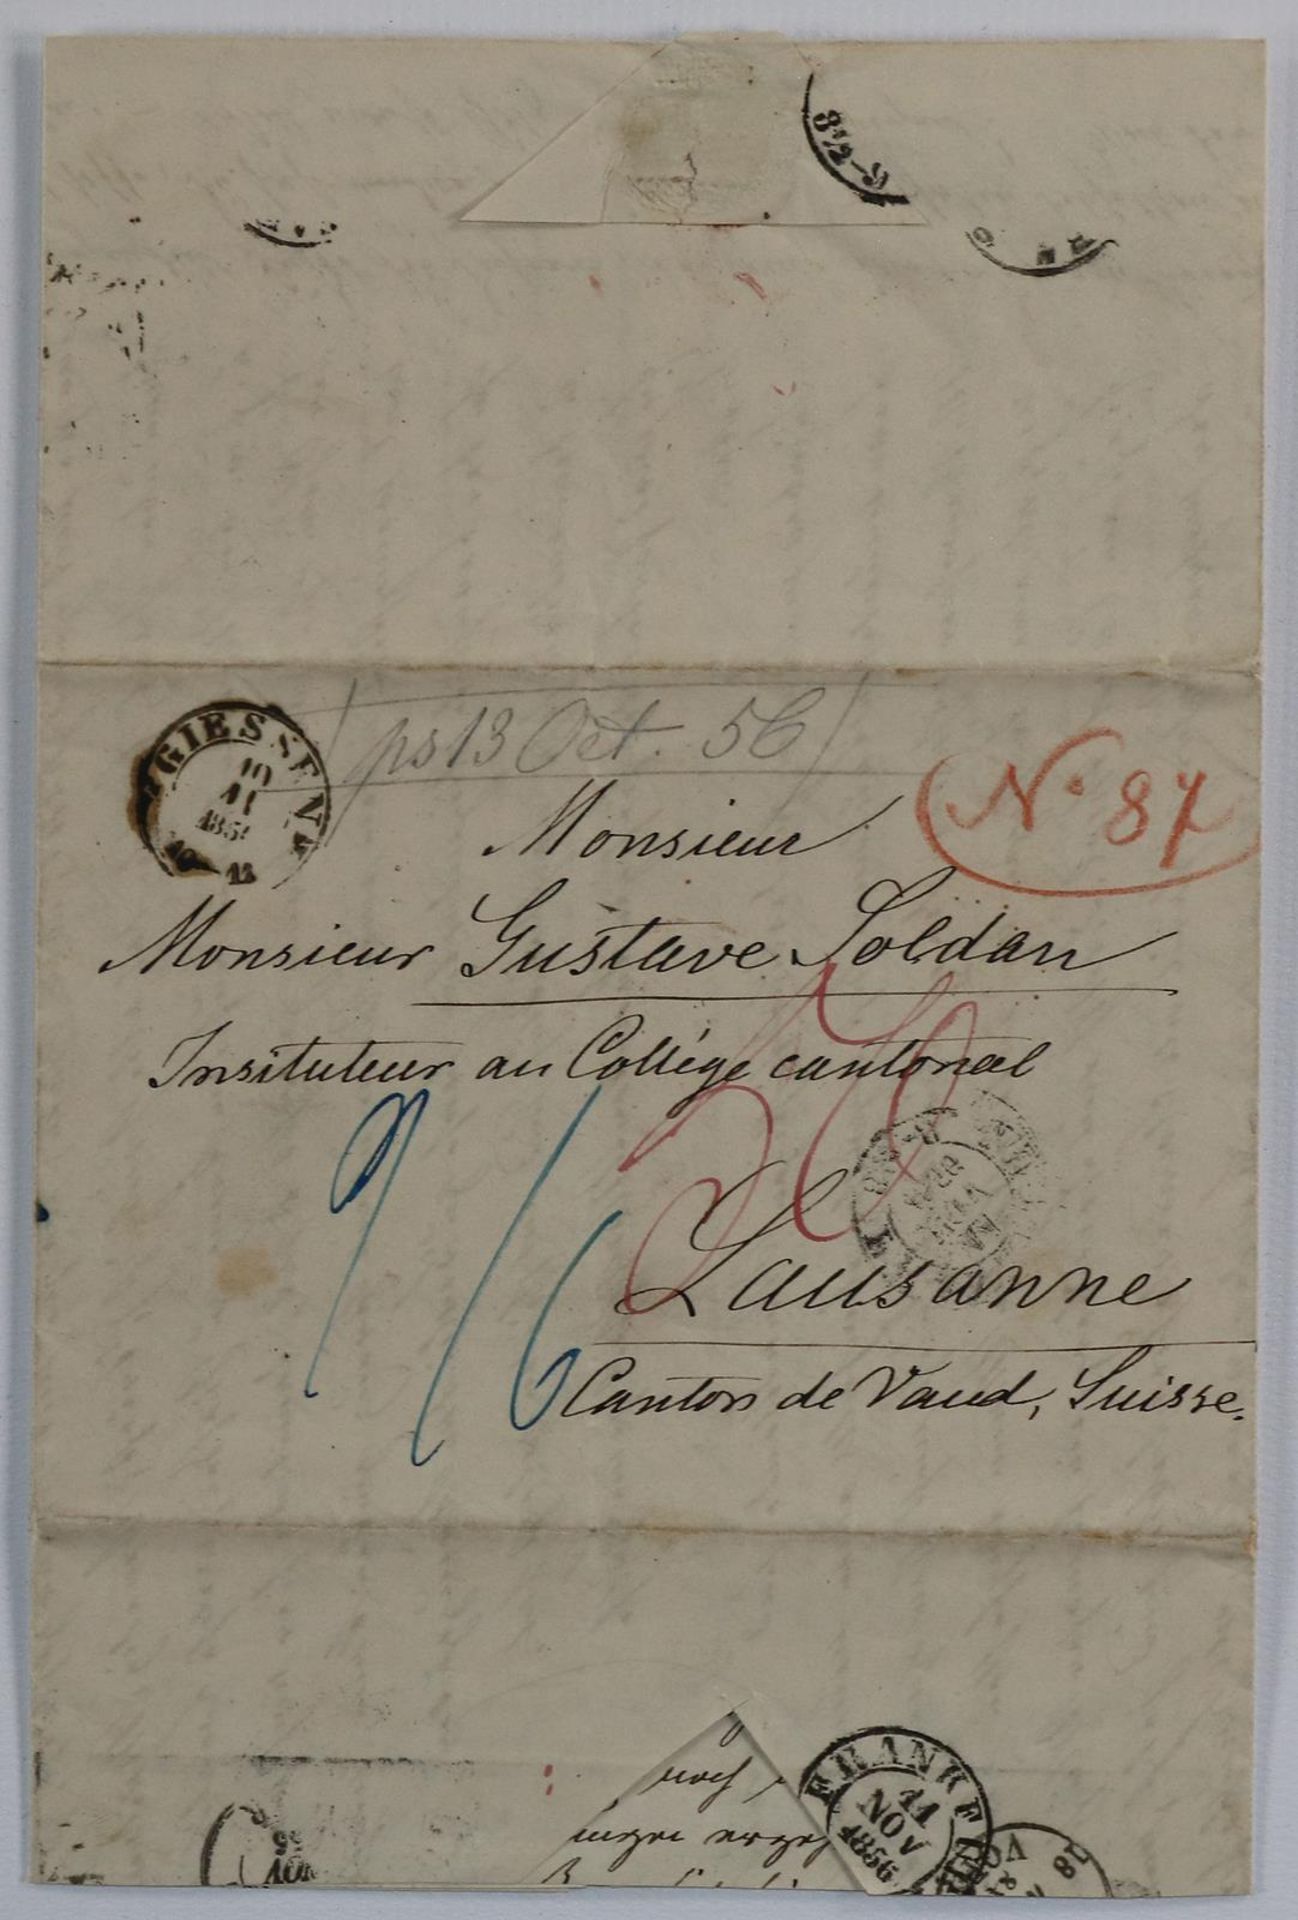 8½-9
GIESSEN
10
11
185
ps 13 Oct. 56
N. 87
Monsieur
Monsieur Gustave Soldan
Insituteur au Collége cantonal
9/6
Lausanne
Canton de Vaud, Suisse.
noch
FRANKF
11
NOV
1856
NOV